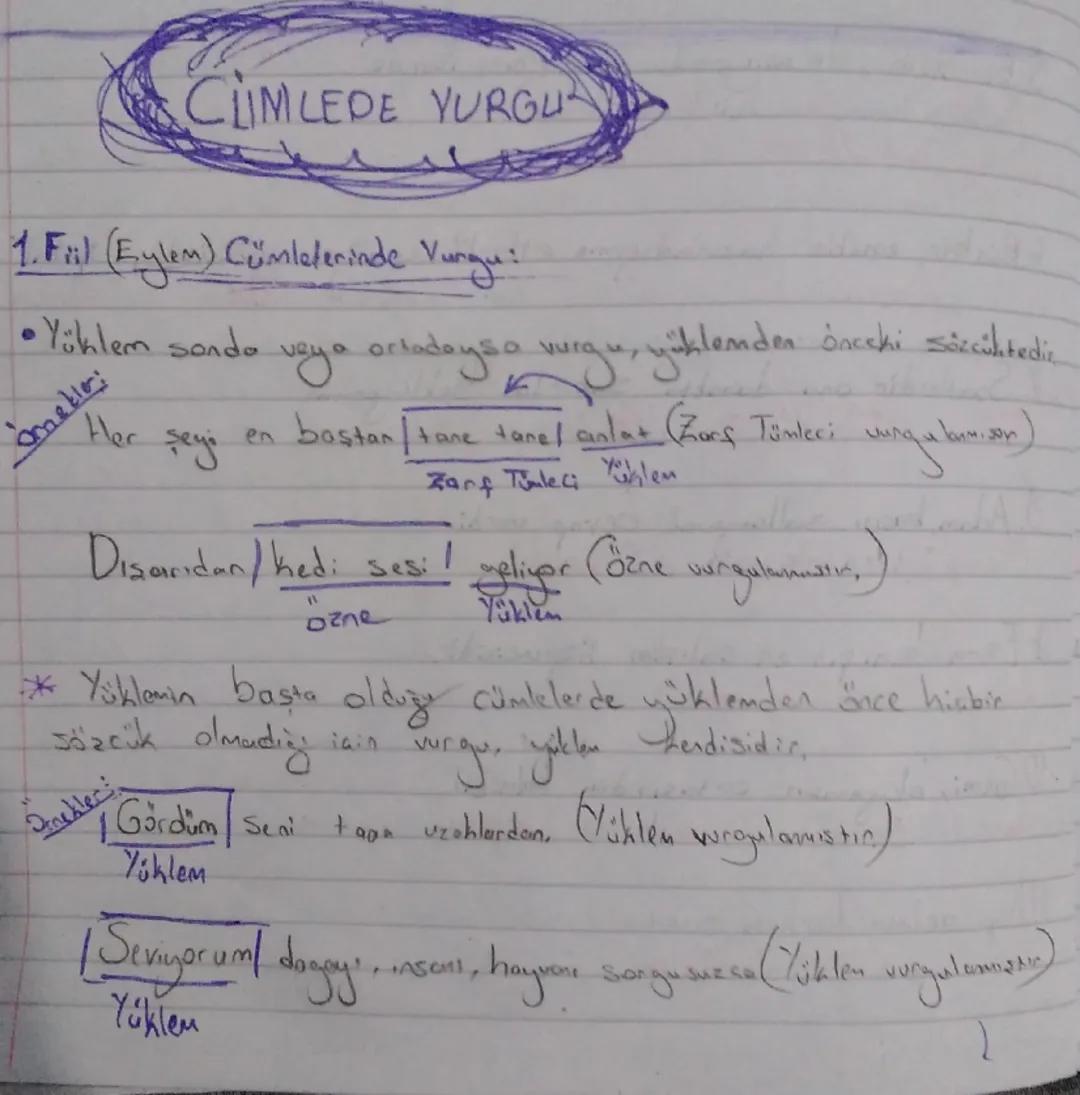 CÜMLEDE VURGU
1. Fiil (Eylem) Cümlelerinde Vurgu:
• Yüklem sonda veya ortadaysa vurgu, yüklemden önceki sözcüktedir.
Örnekler:
Her şeyi en baştan | tane tane | anlat (Zarf Tümleci vurgulanmıştır)
Zarf Tümleci Yüklem
Dışarıdan | kedi sesi | geliyor (Özne vurgulanmıştır.)
Özne Yüklem
* Yüklemin başta olduğu cümlelerde yüklemden önce hiçbir
sözcük olmadığı için vurgu, yüklem kendisidir.
Örnekler:
| Gördüm | seni taaa uzaklardan. (Yüklem vurgulanmıştır)
Yüklem
| Seviyorum | doğayı, insanı, hayvanı sorgusuzca (Yüklem vurgulanmıştır)
Yüklem